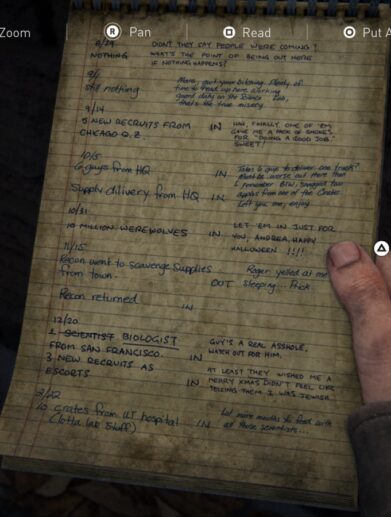 Zoom
R Pan
Read
Put A
8/29 DIDN'T THEY SAY PEOPLE WERE COMING!
NOTHING WHAT'S THE POINT OF BEING OUT HERE
IF NOTHING HAPPENS?
9/1 Man, quit your bitching. Plenty of
still nothing time to read up here. Working
guard duty on the Science Lab,
that's the true misery
9/14
5 NEW RECRUITS FROM IN HAH, FINALLY ONE OF 'EM
CHICAGO Q.Z. GAVE ME A PACK OF SMOKES
FOR "DOING A GOOD JOB."
SWEET!
10/5
6 guys from HQ IN Takes 6 guys to deliver one
Must be worse out there than
Supply dilivery from HQ IN I remember. BTW, swapped two
apples from one of the Crates.
Left you one, enjoy
10/31 LET 'EM IN JUST FOR
10 MILLION WEREWOLVES IN YOU, ANDREA. HAPPY
HALLOWEEN !!!!
11/15
Recon went to scavenge supplies Roger yelled at me
from town. OUT sleeping... Prick
Recon returned IN
12/20
1 SCIENTIST BIOLOGIST GUY'S A REAL ASSHOLE.
FROM SAN FRANCISCO. IN WATCH OUT FOR HIM.
3 NEW RECRUITS AS AT LEAST THEY WISHED ME A
ESCORTS IN MERRY XMAS DIDN'T FEEL LIKE
TELLING THEM I WAS JEWISH.
2/22
10 crates from hospital IN Lot more mouths to feed with
(lotta lab stuff) all those scientists...